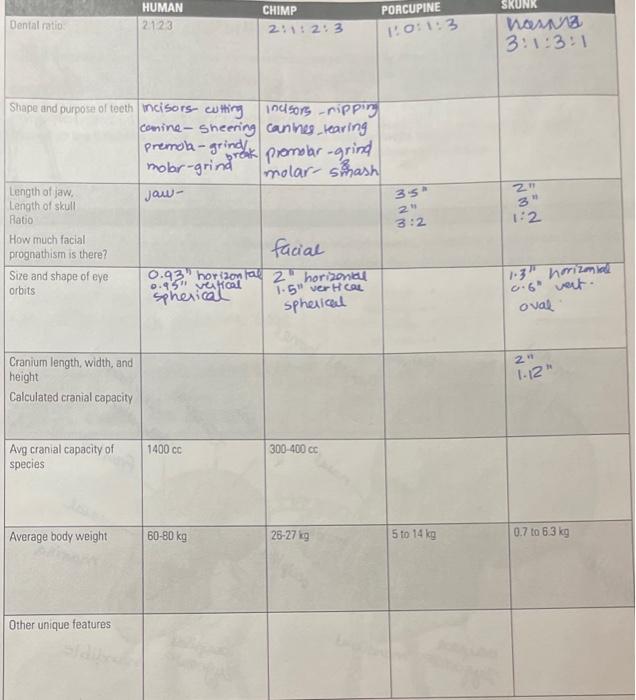 HUMAN CHIMP PORCUPINE SKUNK
Dental ratio: 2:1:2:3 2:1:2:3 1:0:1:3
3:1:3:1
Shape and purpose of teeth
incisors- cutting
canine- sheering
premola- grind/break
molar-grind
incisors -nipping
canines -tearing
premolar -grind
molar- & smash
Length of jaw,
Length of skull
Ratio
jaw-
3.5"
2"
3:2
2"
3"
1:2
How much facial
prognathism is there?
facial
Size and shape of eye
orbits
0.93" horizontal
0.95" vertical
spherical
2" horizontal
1.5" vertical
spherical
1.3" horizontal
0.6" vert.
oval
Cranium length, width, and
height
2"
1.12"
Calculated cranial capacity
Avg cranial capacity of
species
1400 cc 300-400 cc
Average body weight 60-80 kg 26-27 kg 5 to 14 kg 0.7 to 6.3 kg
Other unique features